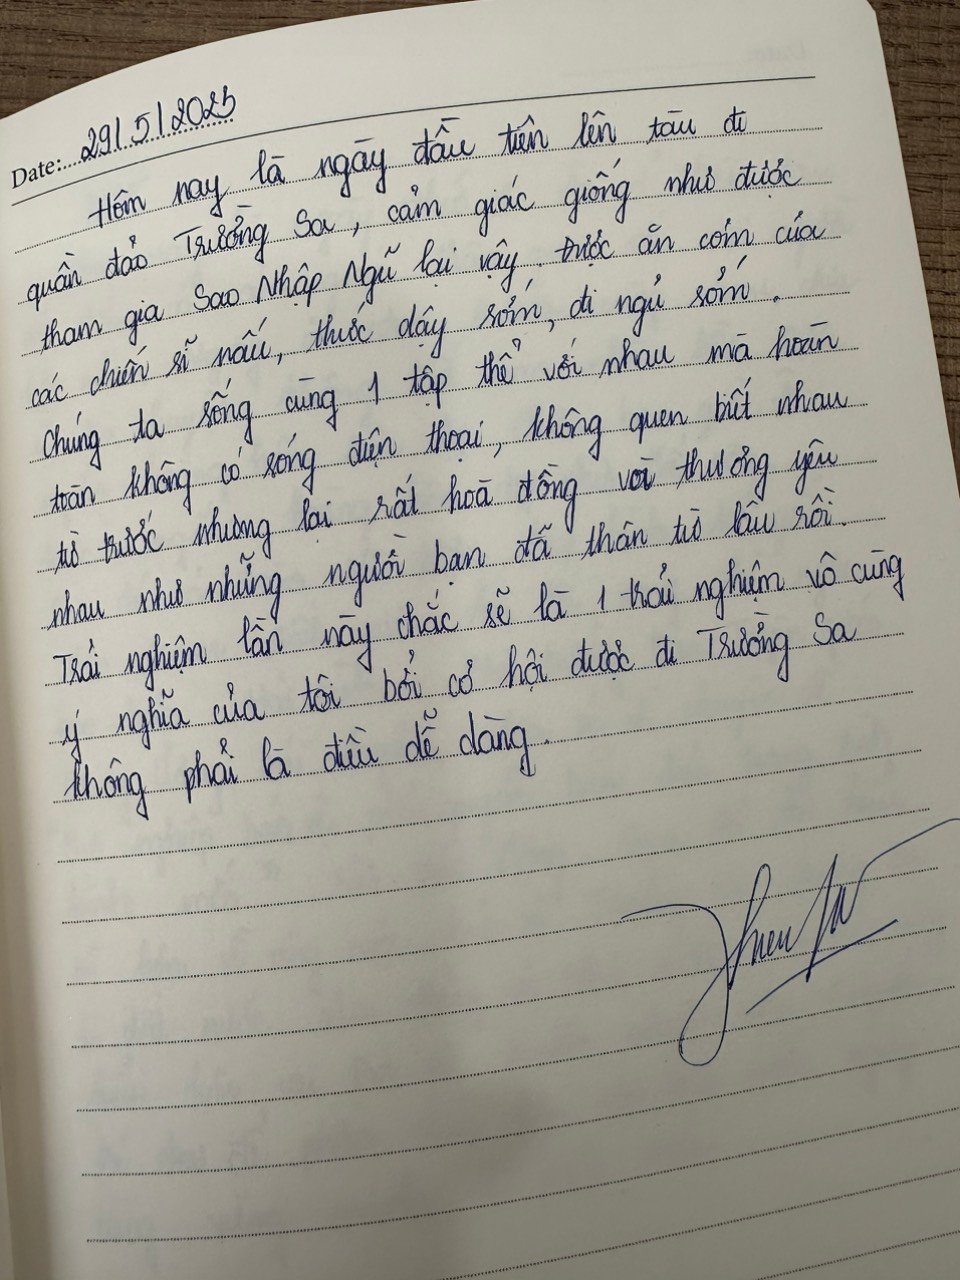 Date: 29/5/2025
Hôm nay là ngày đầu tiên lên tàu đi
quần đảo Trường Sa, cảm giác giống như được
tham gia Sao Nhập Ngũ lại vậy. Được ăn cơm của
các chiến sĩ nấu, thức dậy sớm, đi ngủ sớm.
Chúng ta sống cùng 1 tập thể với nhau mà hoàn
toàn không có sóng điện thoại, không quen biết nhau
từ trước nhưng lại rất hoà đồng và thương yêu
nhau như những người bạn đã thân từ lâu rồi.
Trải nghiệm lần này chắc sẽ là 1 trải nghiệm vô cùng
ý nghĩa của tôi bởi cơ hội được đi Trường Sa
không phải là điều dễ dàng.